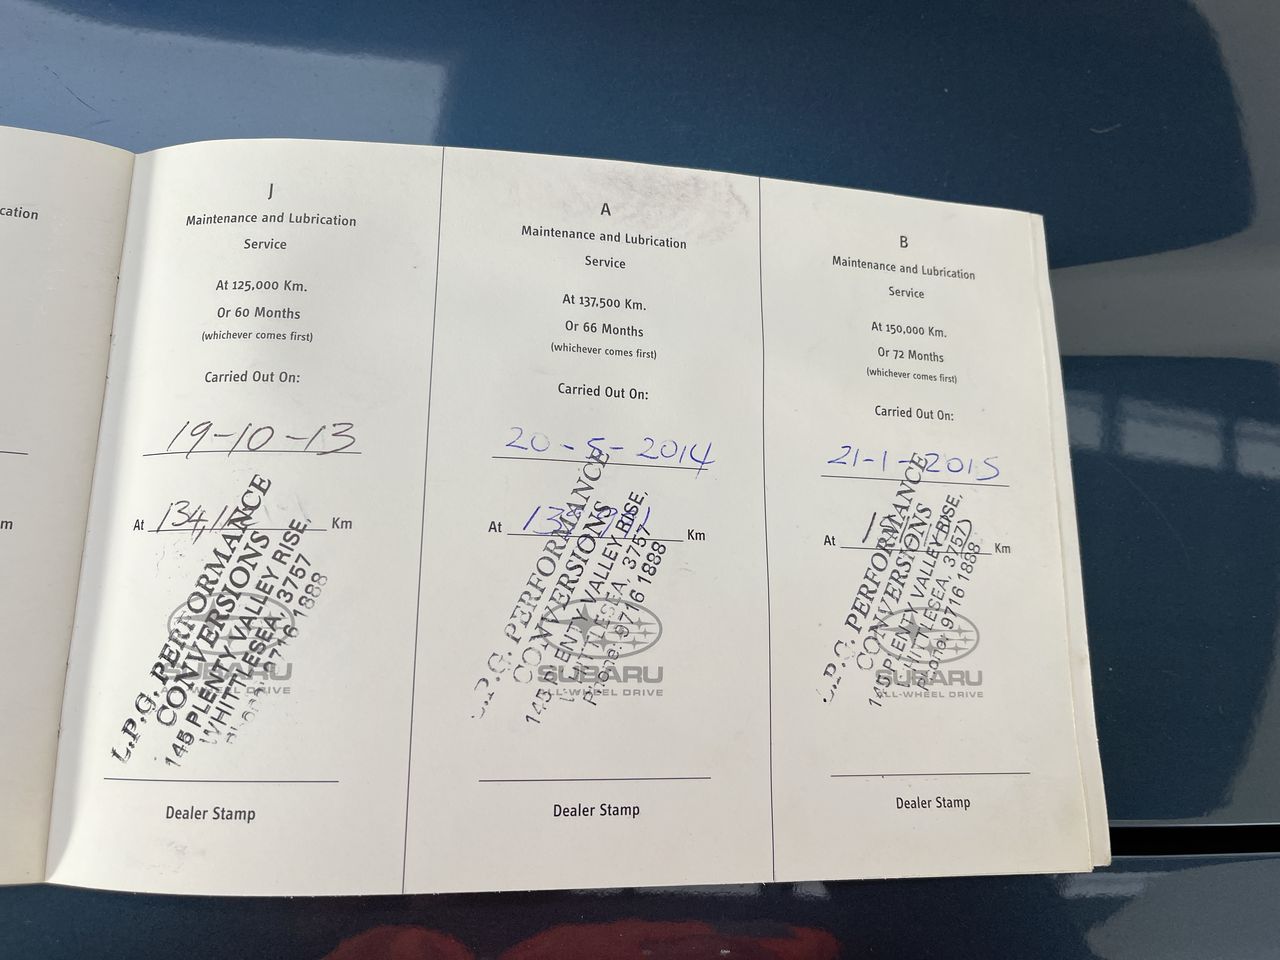 cation
m
J
Maintenance and Lubrication
Service
At 125,000 Km.
Or 60 Months
(whichever comes first)
Carried Out On:
19-10-13
At 134,1 Km
L.P.G. PERFORMANCE
CONVERSIONS
145 PLENTY VALLEY RISE,
WHITTLESEA, 3757
Phone: 9716 1888
SUBARU
ALL-WHEEL DRIVE
Dealer Stamp
A
Maintenance and Lubrication
Service
At 137,500 Km.
Or 66 Months
(whichever comes first)
Carried Out On:
20-5-2014
At Km
L.P.G. PERFORMANCE
CONVERSIONS
145 PLENTY VALLEY RISE,
WHITTLESEA, 3757
Phone: 9716 1888
SUBARU
ALL-WHEEL DRIVE
Dealer Stamp
B
Maintenance and Lubrication
Service
At 150,000 Km.
Or 72 Months
(whichever comes first)
Carried Out On:
21-1-2015
At Km
L.P.G. PERFORMANCE
CONVERSIONS
145 PLENTY VALLEY RISE,
WHITTLESEA, 3757
Phone: 9716 1888
SUBARU
ALL-WHEEL DRIVE
Dealer Stamp